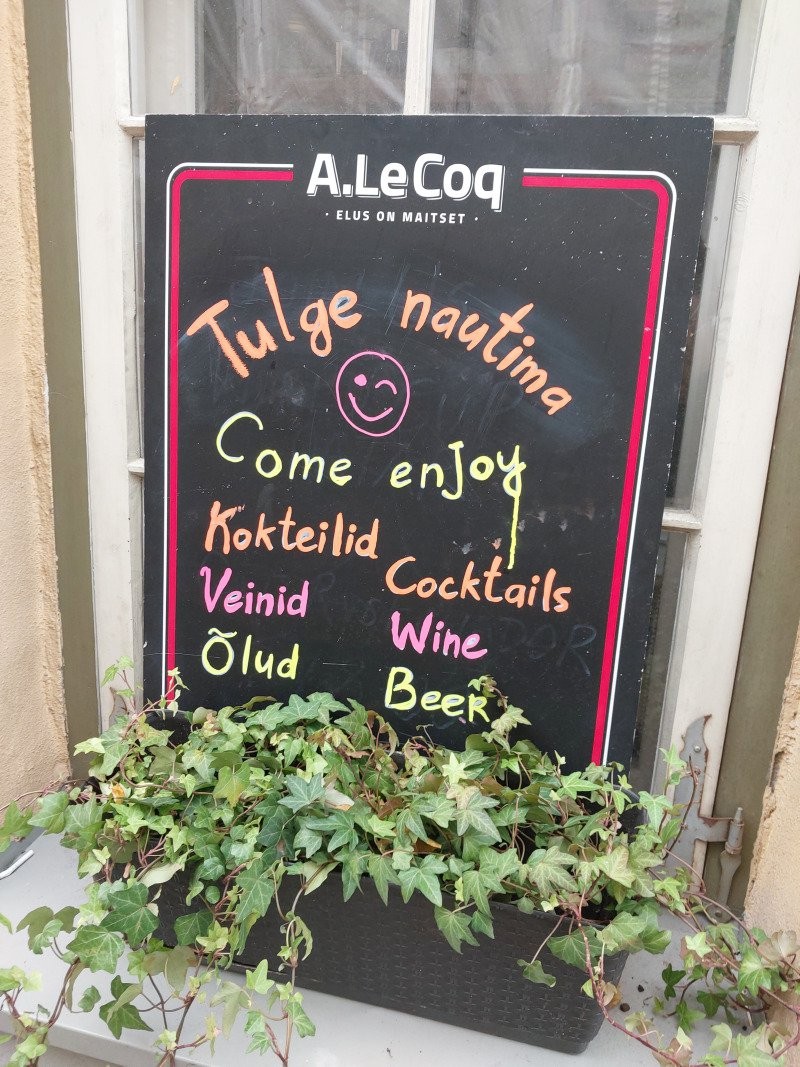 A.LeCoq
· ELUS ON MAITSET ·
Tulge nautima
Come enjoy
Kokteilid
Veinid
Õlud
Cocktails
Wine
Beer